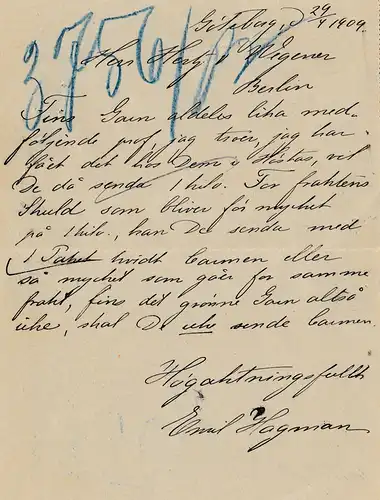 Göteborg, d 29/1 1909.
3756/
Herr Herz & Wegener
Berlin
Fins Garn aldeles lika med-
følgende prof, jag troer, jag har
fået det hos Dem i Høstas, vil
De då senda 1 kilo. For fraktens
skuld som bliver før mycket
på 1 kilo, kan De senda med
1 Paket hvidt Garnen eller
så mycket som går for samme
frakt, fins det grønne Garn altså
icke, skal De icke sende Garnen.
Högaktningsfullt
Emil Hagman